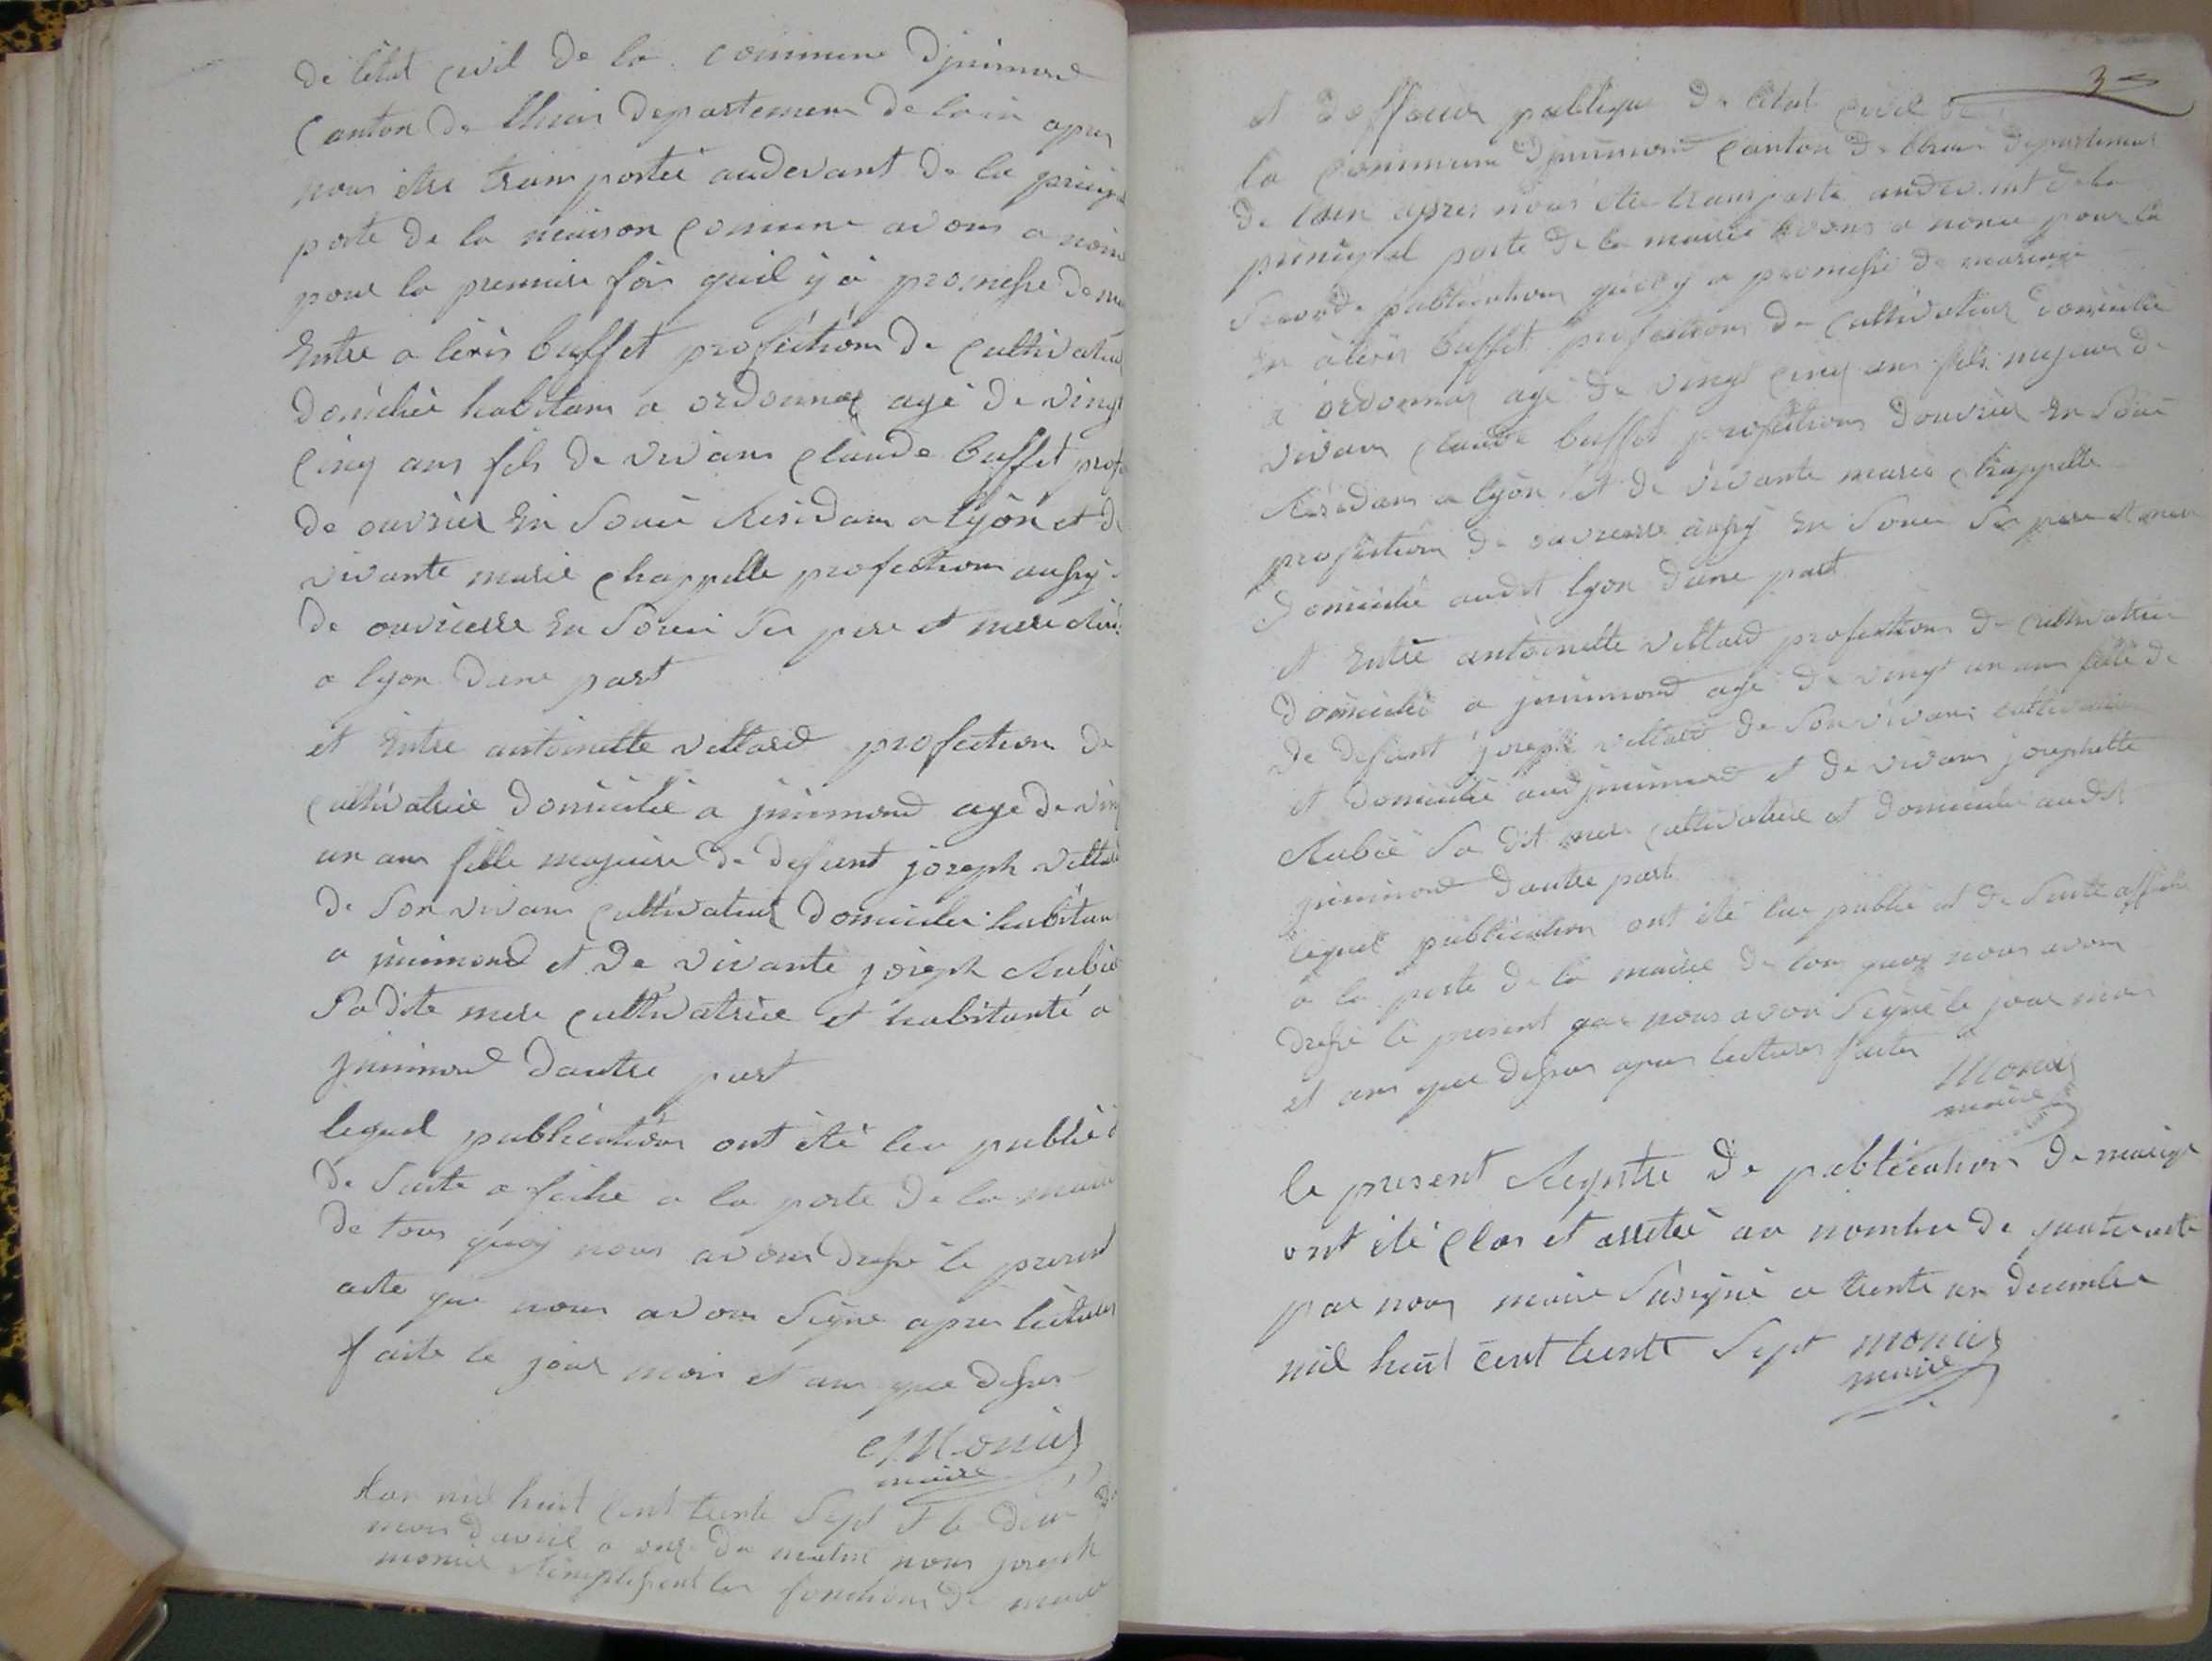 de létat civil de la commune djzimmond
canton de lhuis departement de lain apres
nous être transportée audevant de la
porte de la maison comune avons a
pour la premiere fois quil y à promesse de
Entre a lexis buffet profectiom de cultivateur
domicilié habitans a ordonnaz agé de vingt
cinq ans fils de vivans claude buffet
de ouvrier en soiie Residans a lyon et de
vivante marie chappelle profections aussy
de ouvrierre en soiie ses pere et mere
a lyon dune part
et Entre antoinette vettard profection de
cultivatrice domicilié a jzimmond age de
un ans fille majeure de defunt joseph
de son vivans cultivateur domicilié habitan
a jzimmond et de vivante joseph
sa dite mere cultivatrice et habitante a
jzimmond dautre part
lequel publication ont été leu publié
de suite a fiché a la porte de la mairie
de tous quoy nous avons dressé le present
acte que nous avons signé apres lecture
faite le jour mois et ans que dessus
Monier
maire
Lan mil huit cent trente sept et le deux
mois davril a onze du matin nous joseph
monier Remplissent les fonctions de maire
3
et doffecier publique de létat civil de
la commune djzimmond canton de lhuis departement
de lain apres nous être transporté audevant de la
principal porte de la mairie avons a noncé pour la
seconde publication quil y a promesse de mariage
en alexis buffet profections de cultivateur domicilié
a ordonnaz agé de vingt cinq ans fils majeur de
vivans claude buffet profections douvrier en soiie
Résidans a lyon et de vivante marie chappelle
profections de ouvrierre aussy en soiie ses pere et mere
domicilié audit lyon dune part
et Entre antoinette vettard profections de cultivatrice
domicilié a jzimmond agé de vingt un ans fille de
de defunt joseph vettard de son vivans cultivateur
et domicilié aud jzimmond et de vivans josephette
sa dit mere cultivatrice et domicilié audit
jzimmond dautre part
lequel publication ont été lue publié et de suite affiché
a la porte de la mairie de tous quoy nous avons
dressé le present que nous avon signé le jour mois
et ans que dessus apres lecture faite
Monier
maire
le present Registre de publication de mariage
ont été clos et arreté au nombre de acte
par nous maire susigné ce trente un decembre
mil huit cent trente sept monier
maire